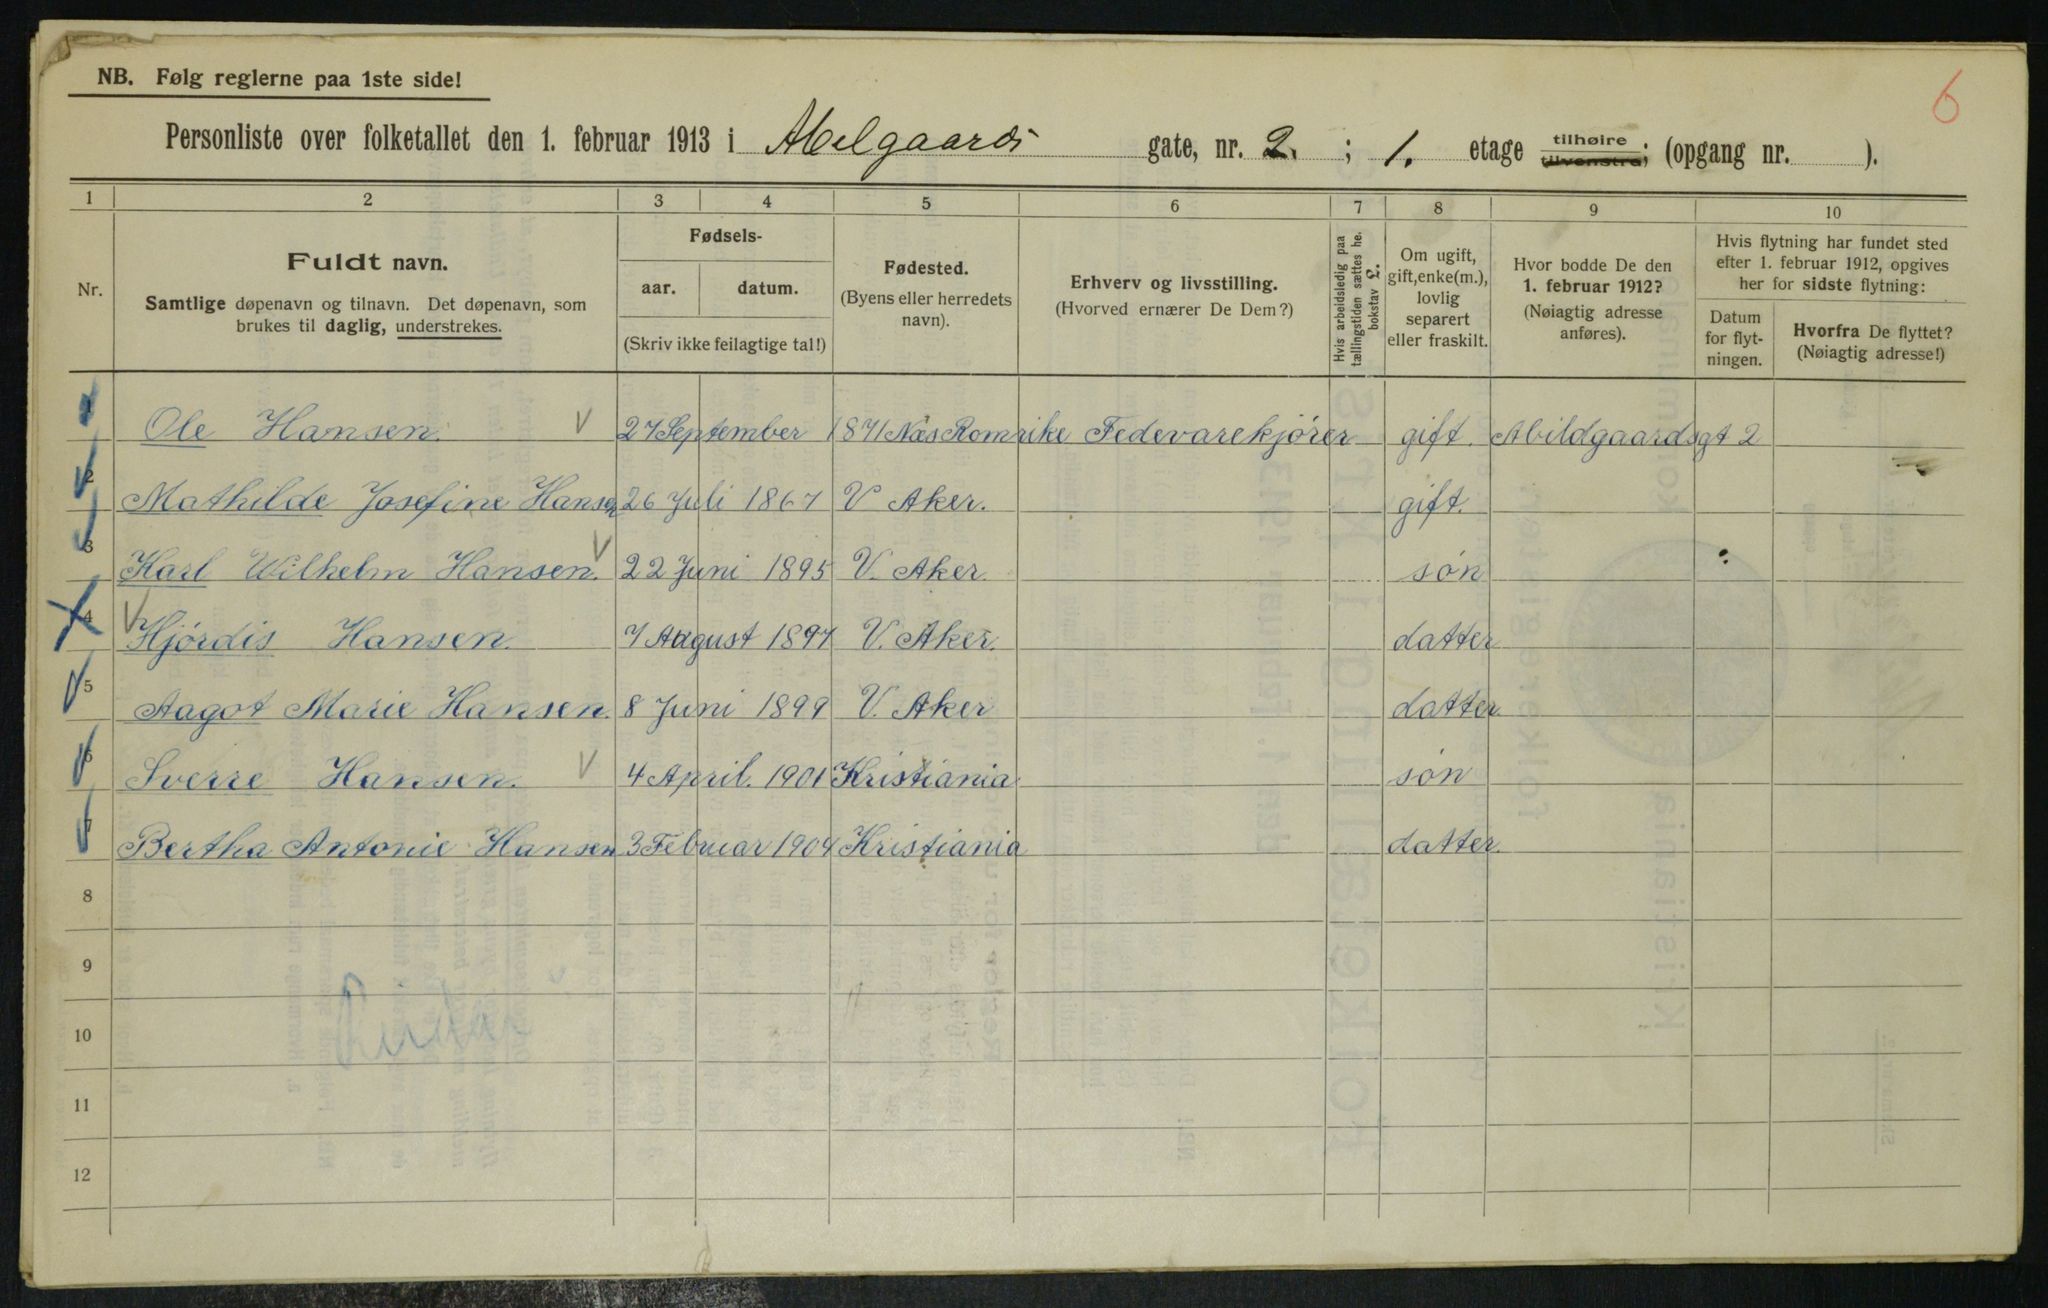 6
NB. Følg reglerne paa 1ste side!
Personliste over folketallet den 1. februar 1913 i Abelgaards gate, nr. 2. ; 1. etage tilhøire tilvenstre; (opgang nr. ).
1 2 3 4 5 6 7 8 9 10
Nr.
Fuldt navn.
Samtlige døpenavn og tilnavn. Det døpenavn, som
brukes til daglig, understrekes.
Fødsels-
aar. datum.
(Skriv ikke feilagtige tal!)
Fødested.
(Byens eller herredets
navn).
Erhverv og livsstilling.
(Hvorved ernærer De Dem?)
Hvis arbeidsledig paa
tællingstiden sættes he.
bokstav l.
Om ugift,
gift, enke(m.),
lovlig
separert
eller fraskilt.
Hvor bodde De den
1. februar 1912?
(Nøiagtig adresse
anføres).
Hvis flytning har fundet sted
efter 1. februar 1912, opgives
her for sidste flytning:
Datum
for flyt-
ningen.
Hvorfra De flyttet?
(Nøiagtig adresse!)
1 Ole Hansen. 27 September 1871 Næs Romrike Fedevarekjører gift. Abildgaardsgt 2
2 Mathilde Josefine Hansen 26 Juli 1867 V Aker. gift.
3 Karl Wilhelm Hansen. 22 Juni 1895 V. Aker. søn
4 Hjørdis Hansen. 7 August 1897 V. Aker. datter
5 Aagot Marie Hansen. 8 Juni 1899 V. Aker datter.
6 Sverre Hansen. 4 April. 1901 Kristiania søn
7 Bertha Antonie Hansen 3 Februar 1904 Kristiania datter.
8
9
10
11
12